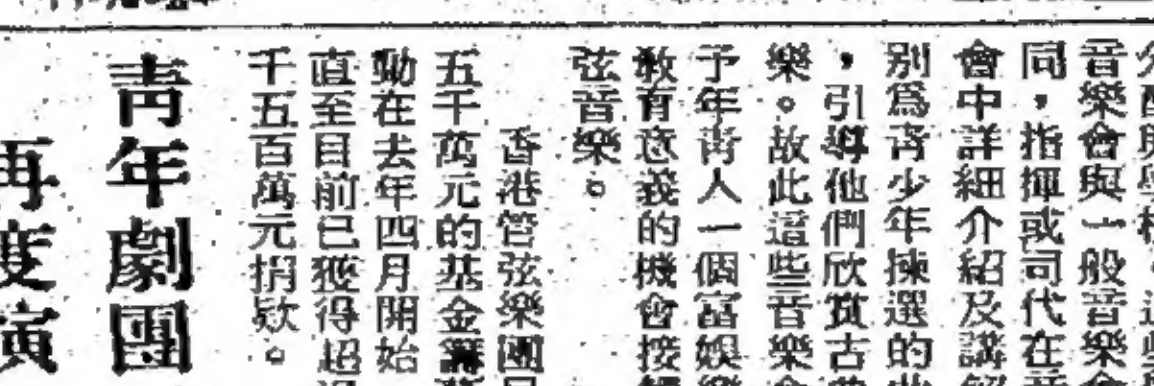 音樂會與一般音樂會
同，指揮或司代在音
會中詳細介紹及講解
別爲靑少年揀選的曲
，引導他們欣賞古典
樂。故此這些音樂會
予年靑人一個富娛樂
敎有意義的機會接觸
弦音樂。
香港管弦樂團
五千萬元的基金籌募
動在去年四月開始
直至目前已獲得超過
千五百萬元捐欵。
靑年劇團
再度演